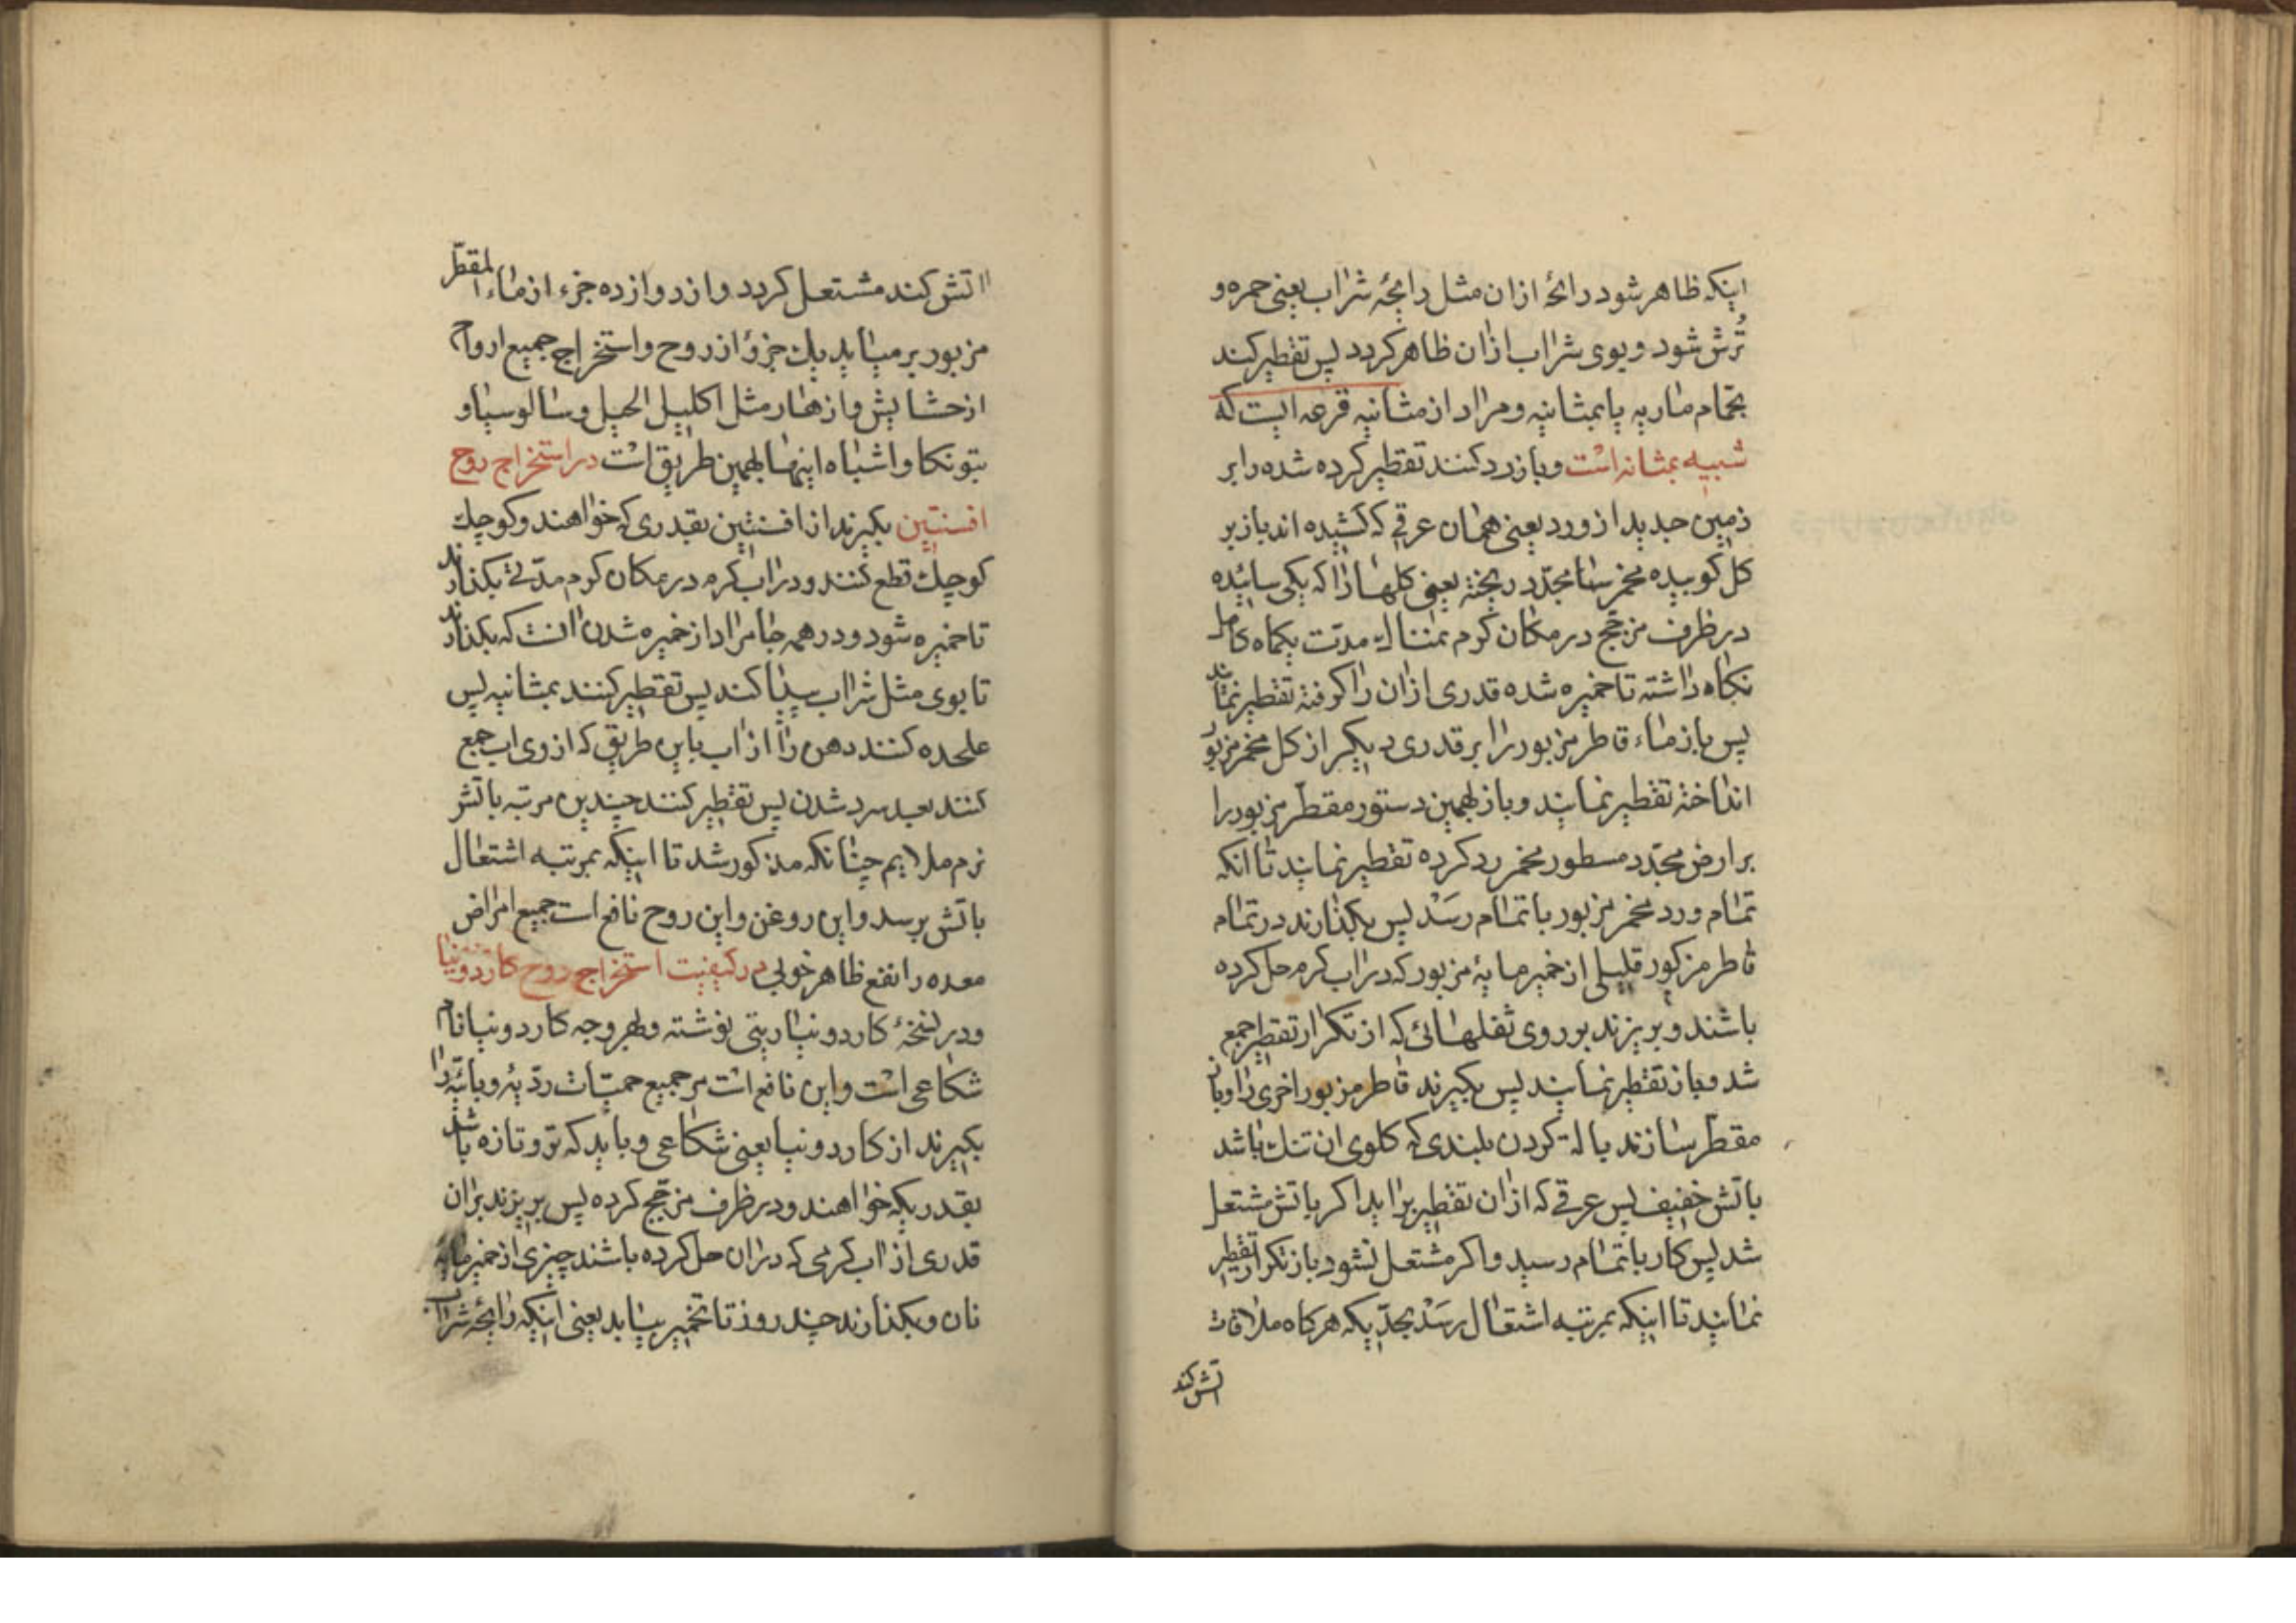 اینکه ظاهر شود رائحهٔ ازان مثل رایحهٔ شراب یعنی حمره و
تُرش شود و بوی شراب ازان ظاهر کردد پس تقطیر کنند
بحمام ماریه یا بمثانیه و مراد از مثانیه قرعه ایست که
شبیه بمثانه است و باز رد کنند تقطیر کرده شده را بر
زمین جدید از ورد یعنی همان عرقی که کشیده اند باز بر
کل کوبیده مخمر سا مجدّد ریخته یعنی کلها را که یکی سائیده
در ظرف مزجج در مکان کرم بمثنا الی مدّت یکماه کامل
نکاه داشته تا خمیره شده قدری ازان را کوفته تقطیر نمایند
پس باز ماء قاطر مزبور را بر قدری دیکر از کل مخمر مزبور
انداخته تقطیر نمایند و باز بهمین دستور مقطّر مزبور را
بر ارض مجدّد مسطور مخمر رد کرده تقطیر نمایند تا انکه
تمام ورد مخمر مزبور باتمام رسَدْ پس بکذارند در تمام
قاطر مزکور قلیلی از خمیر مایهٔ مزبور که دراب کرم حل کرده
باشند و بریزند بر روی ثفلهائی که از تکرار تقطیر جمع
شد و باز تقطیر نمایند پس بکیرند قاطر مزبور اخری را و باز
مقطّر سازند بالهٔ کردن بلندی که کلوی ان تنك باشد
باتش خفیف پس عرقی که ازان تقطیر براید اکر باتش مشتعل
شد پس کار باتمام رسید و اکر مشتعل نشود باز تکرار تقطیر
نمایند تا اینکه بمرتبه اشتعال رسَدْ بحدّیکه هرکاه ملاقات
اتش کند
اتش کند مشتعل کردد و از دوازده جزء از ماء المقطّر
مزبور بر میاید یك جزؤ از روح و استخراج جمیع ارواح
از حشایش و ازهار مثل اکلیل الجبل و سالوسیا و
بتونکا و اشباه اینها بهمین طریق است در استخراج روح
افسنتین بکیرند از افسنتین بقدری که خواهند و کوچك
کوچك قطع کنند و دراب کرم در مکان کرم مدّتی بکذارند
تا خمیره شود و در همه جا مراد از خمیره شدن انست که بکذارند
تا بوی مثل شراب پیدا کند پس تقطیر کنند بمثانیه پس
علحده کنند دهن را از اب باین طریق که از روی اب جمع
کنند بعد سرد شدن پس تقطیر کنند چندین مرتبه باتش
نرم ملایم چنانکه مذکور شد تا اینکه بمرتبه اشتعال
باتش برسد و این روغن و این روح نافع است جمیع امراض
معده را نفع ظاهر خوبی در کیفیت استخراج روح کاردونیا
و در نسخهٔ کاردونیا ریتی نوشته و بهر وجه کاردونیا نام
شکاعی است و این نافع است مر جمیع حمیّات ردّیهٔ وبائیّه را
بکیرند از کاردونیا یعنی شکاعی و باید که تر و تازه باشد
بقدریکه خواهند و در ظرف مزجّج کرده پس بریزند بران
قدری از اب کرمی که دران حل کرده باشند چیزی از خمیر مایهٔ
نان و بکذارند چند روز تا تخمیر بیابد یعنی اینکه رایحهٔ شراب